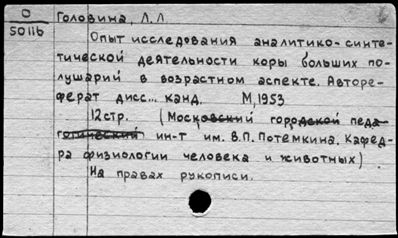 О
50116
Головина, Л.Л
Опыт исследования аналитико-синте-
тической деятельности коры больших по-
лушарий в возрастном аспекте. Авторе-
ферат дисс... канд. М, 1953
12 стр. (Московский городской педа-
гогический ин-т им. В.П. Потемкина. Кафед-
ра физиологии человека и животных)
На правах рукописи.